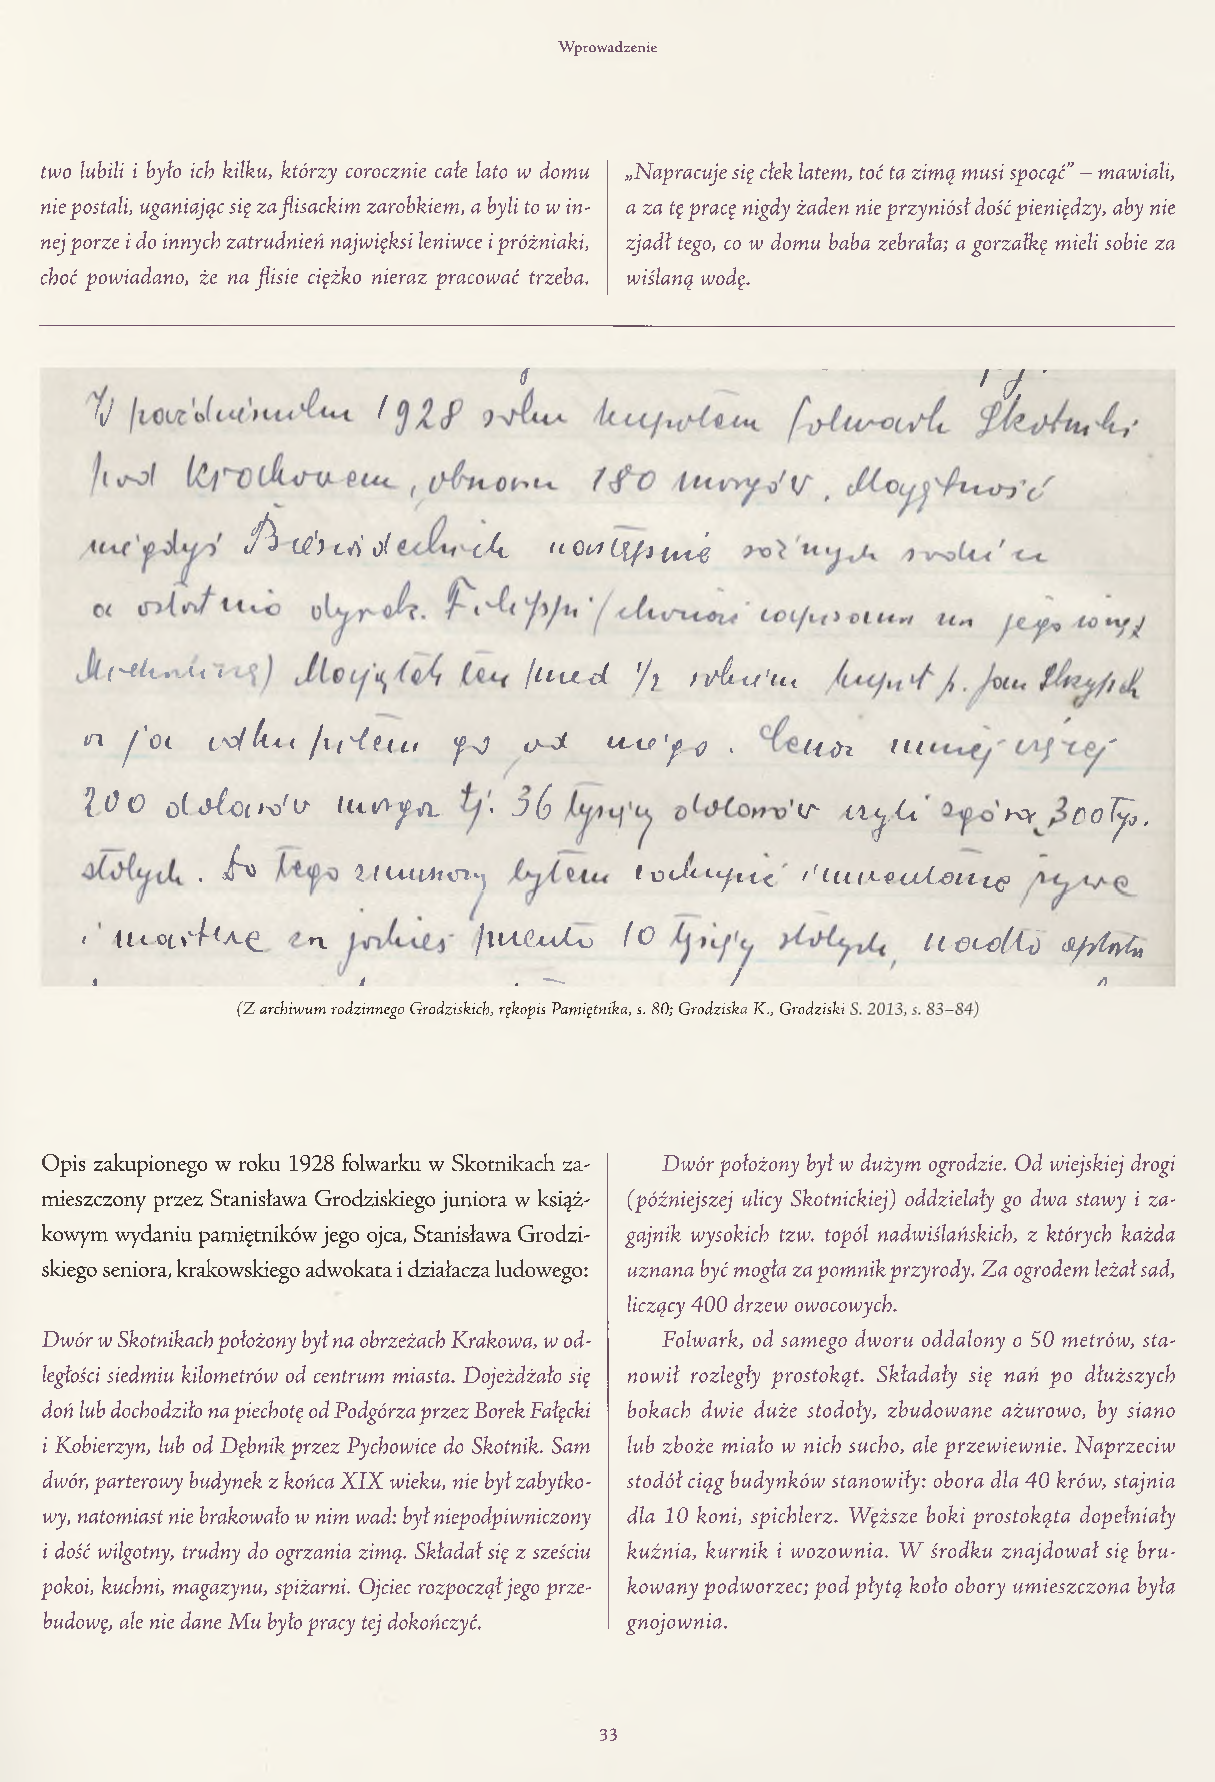 Wprowadzenie
two lubili i było ich kilku, którzy corocznie całe lato w domu
nie postali, uganiając się za flisackim zarobkiem, a byli to w in-
nej porze i do innych zatrudnień najwięksi leniwce i próżniaki,
choć powiadano, że na flisie ciężko nieraz pracować trzeba.
„Napracuje się cłek latem, toć ta zimą musi spocąć” – mawiali,
a za tę pracę nigdy żaden nie przyniósł dość pieniędzy, aby nie
zjadł tego, co w domu baba zebrała; a gorzałkę mieli sobie za
wiślaną wodę.
W październiku 1928 roku kupiłem folwark Skotniki
pod Krakowem, obszaru 180 morgów. Majętność
niegdyś następnie różnych rodzin
a ostatnio dyrek. Filippi (chociaż zapisana na jego żonę
Michalinę) Majątek ten przed 1/2 rokiem kupił p. Jan Skrzypek
a ja odkupiłem go od niego. Cena mniej więcej
200 dolarów morga tj. 36 tysięcy dolarów czyli zgórą 300 tys.
złotych. Do tego zmuszony byłem zakupić inwentarze żywe
i martwe za jakieś prawie 10 tysięcy złotych, nadto opłata
(Z archiwum rodzinnego Grodziskich, rękopis Pamiętnika, s. 80; Grodziska K., Grodziski S. 2013, s. 83–84)
Opis zakupionego w roku 1928 folwarku w Skotnikach za-
mieszczony przez Stanisława Grodziskiego juniora w książ-
kowym wydaniu pamiętników jego ojca, Stanisława Grodzi-
skiego seniora, krakowskiego adwokata i działacza ludowego:
Dwór w Skotnikach położony był na obrzeżach Krakowa, w od-
ległości siedmiu kilometrów od centrum miasta. Dojeżdżało się
doń lub dochodziło na piechotę od Podgórza przez Borek Fałęcki
i Kobierzyn, lub od Dębnik przez Pychowice do Skotnik. Sam
dwór, parterowy budynek z końca XIX wieku, nie był zabytko-
wy, natomiast nie brakowało w nim wad: był niepodpiwniczony
i dość wilgotny, trudny do ogrzania zimą. Składał się z sześciu
pokoi, kuchni, magazynu, spiżarni. Ojciec rozpoczął jego prze-
budowę, ale nie dane Mu było pracy tej dokończyć.
Dwór położony był w dużym ogrodzie. Od wiejskiej drogi
(późniejszej ulicy Skotnickiej) oddzielały go dwa stawy i za-
gajnik wysokich tzw. topól nadwiślańskich, z których każda
uznana być mogła za pomnik przyrody. Za ogrodem leżał sad,
liczący 400 drzew owocowych.
Folwark, od samego dworu oddalony o 50 metrów, sta-
nowił rozległy prostokąt. Składały się nań po dłuższych
bokach dwie duże stodoły, zbudowane ażurowo, by siano
lub zboże miało w nich sucho, ale przewiewnie. Naprzeciw
stodół ciąg budynków stanowiły: obora dla 40 krów, stajnia
dla 10 koni, spichlerz. Węższe boki prostokąta dopełniały
kuźnia, kurnik i wozownia. W środku znajdował się bru-
kowany podworzec; pod płytą koło obory umieszczona była
gnojownia.
33